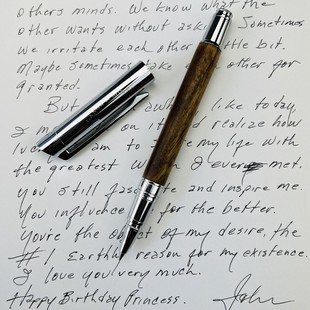 others minds. We know what the
other wants without asking. Sometimes
we irritate each other a little bit.
Maybe sometimes take each other for
granted.
But like today
I on it and realize how
I am to my life with
the greatest I ever met.
You still and inspire me.
You influence for the better.
You're the object of my desire, the
#1 Earthly reason for my existence.
I love you very much.
Happy Birthday Princess.
John